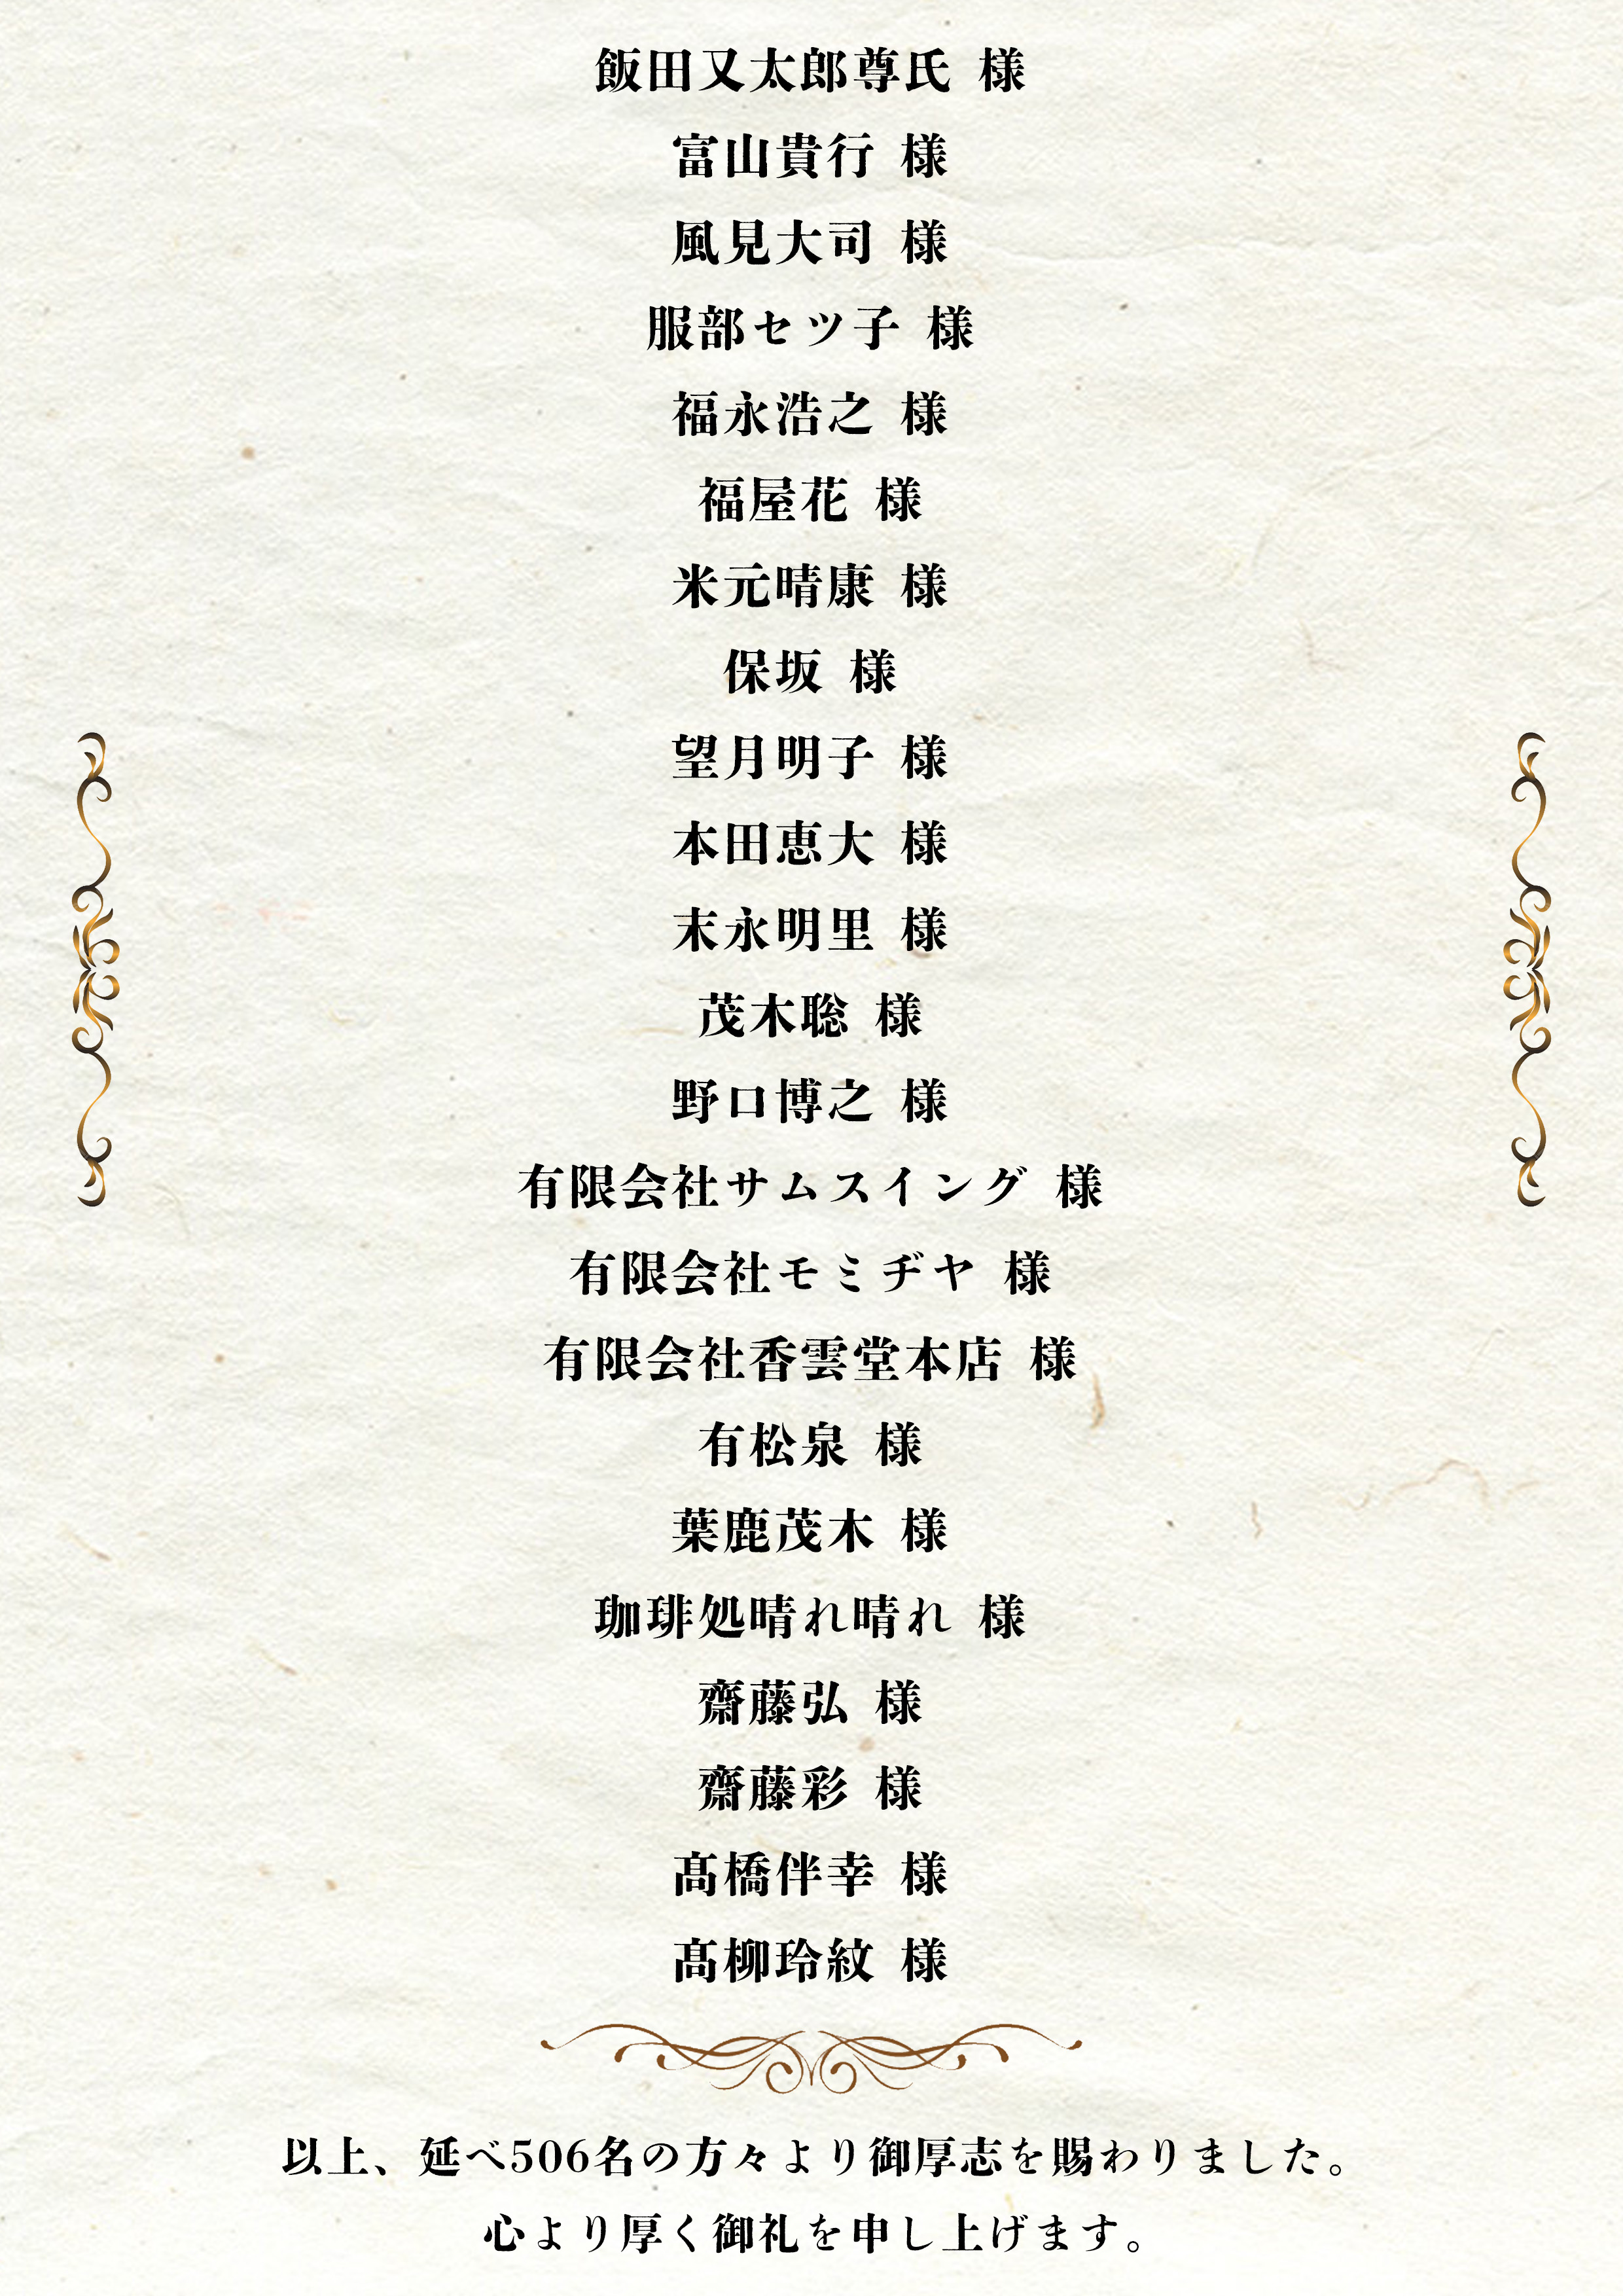 飯田又太郎尊氏 様
富山貴行 様
風見大司 様
服部セツ子 様
福永浩之 様
福屋花 様
米元晴康 様
保坂 様
望月明子 様
本田恵大 様
末永明里 様
茂木聡 様
野口博之 様
有限会社サムスイング 様
有限会社モミヂヤ 様
有限会社香雲堂本店 様
有松泉 様
葉鹿茂木 様
珈琲処晴れ晴れ 様
齋藤弘 様
齋藤彩 様
髙橋伴幸 様
髙柳玲紋 様
以上、延べ506名の方々より御厚志を賜わりました。
心より厚く御礼を申し上げます。